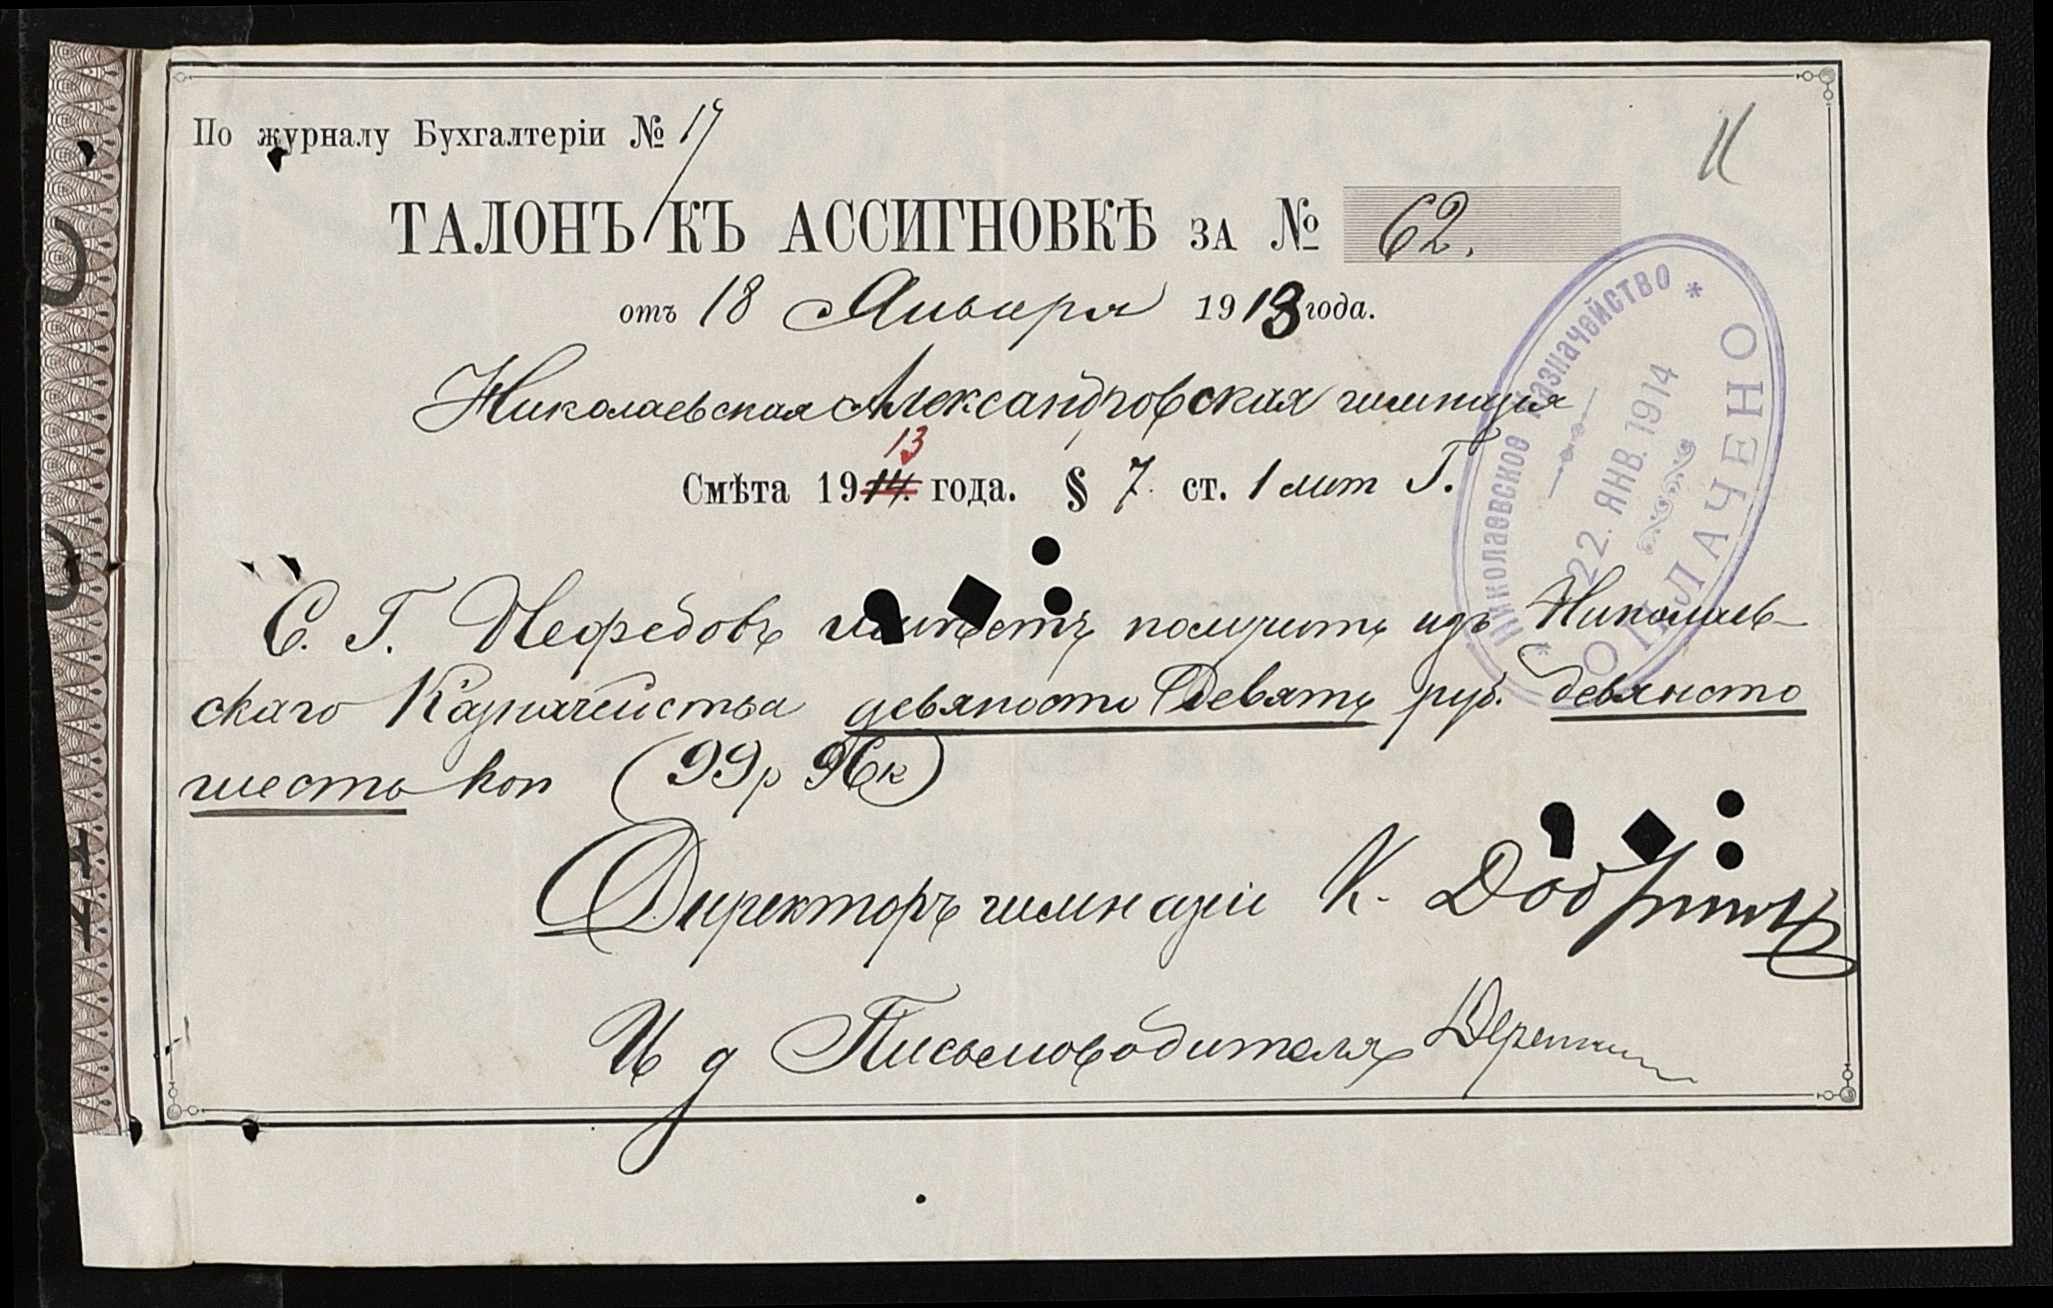 По журналу Бухгалтеріи № 17
11
ТАЛОНЪ КЪ АССИГНОВКѢ ЗА № 62.
отъ 18 Января 1913 года.
Николаевская Александровская гимназія
13
Смѣта 1914. года. § 7. ст. 1 лит Г.
С. Г. Нефедовъ имѣетъ получить изъ Николаев-
скаго Казначейства девяносто девять руб. девяносто
шесть коп (99 р 96 к)
Директоръ гимназіи К. Доб
И д Письмоводителя
НИКОЛАЕВСКОЕ КАЗНАЧЕЙСТВО
22. ЯНВ. 1914
ОПЛАЧЕНО